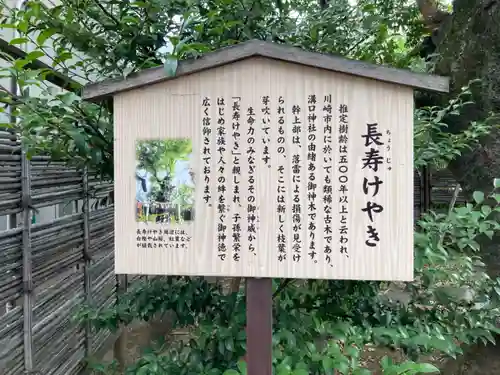 長寿けやき
ちょうじゅ
推定樹齢は五〇〇年以上と云われ、
川崎市内に於いても類稀な古木であり、
溝口神社の由緒ある御神木であります。
幹上部は、落雷による損傷が見受け
られるものの、そこには新しく枝葉が
芽吹いています。
生命力のみなぎるその御神威から、
「長寿けやき」と親しまれ、子孫繁栄を
はじめ家族や人々の絆を繋ぐ御神徳で
広く信仰されております。
けやき周辺には、
白樫や苔、紅葉など
が植栽されています。